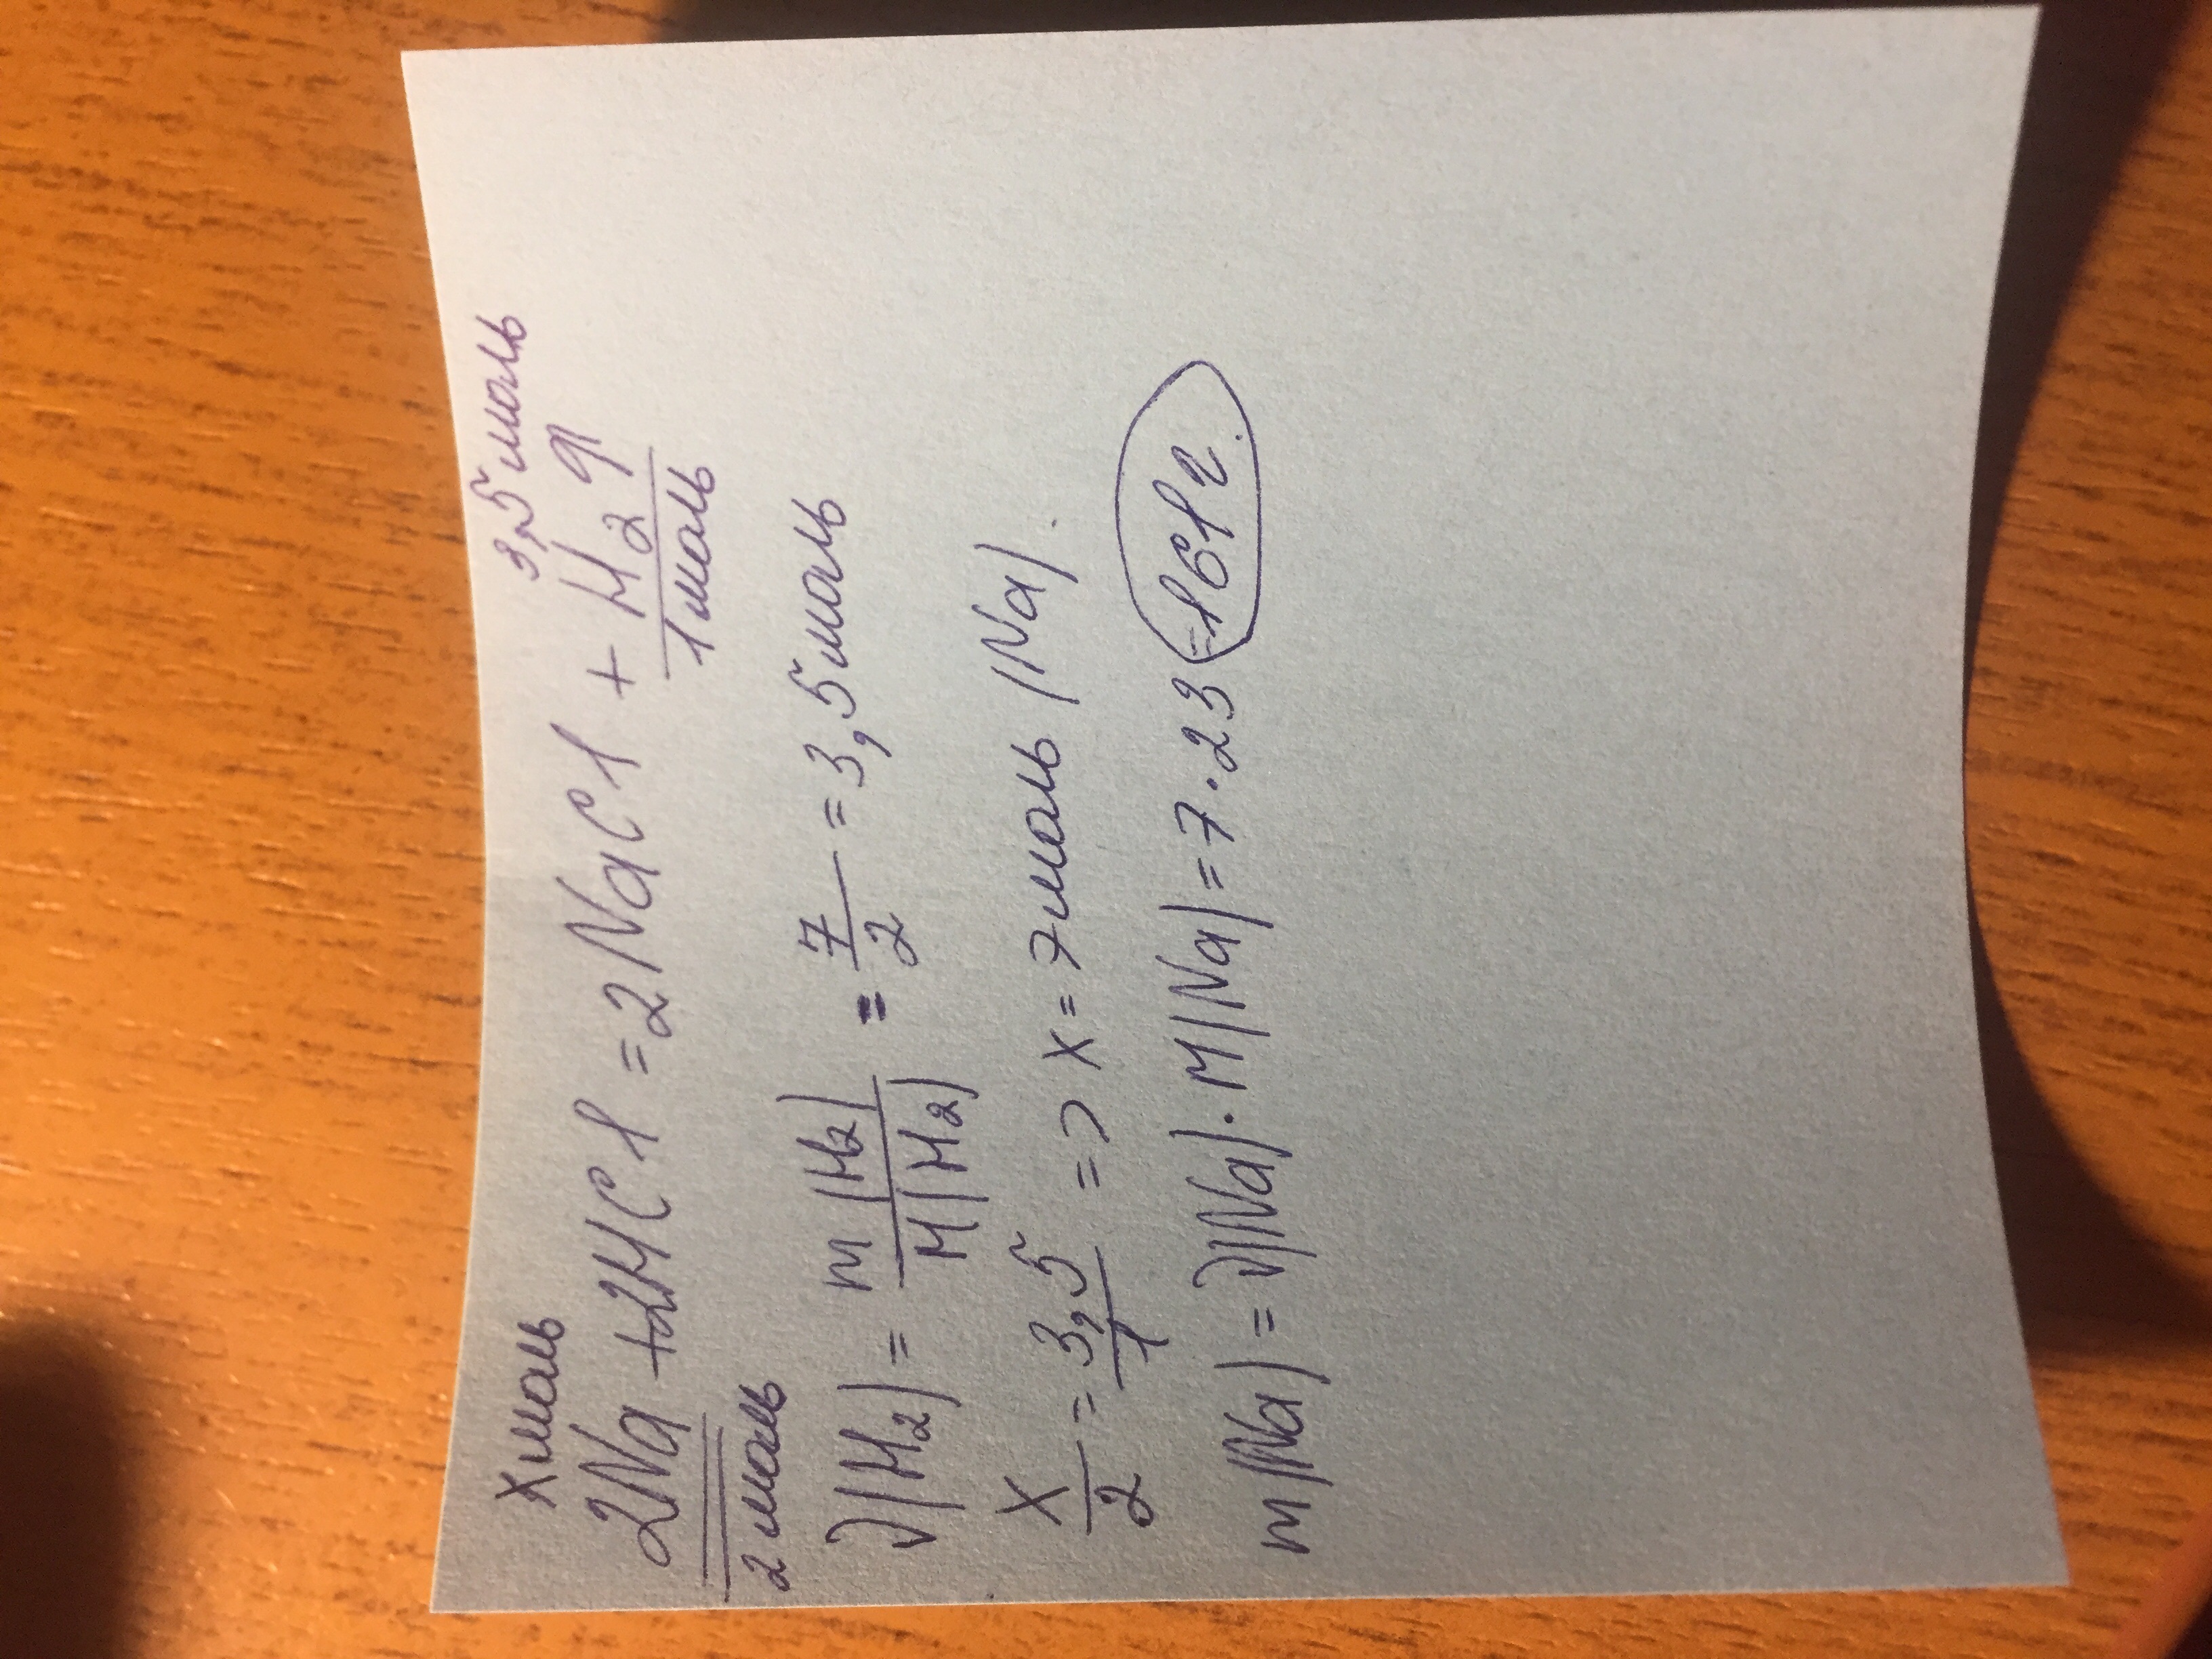 x моль 3,5 моль
2Na + 2HCl = 2NaCl + H2↑
2 моль 1 моль
ν(H2) = m(H2)/M(H2) = 7/2 = 3,5 моль
x/2 = 3,5/1 => x = 7 моль (Na).
m(Na) = ν(Na)·M(Na) = 7·23 = 161 г.